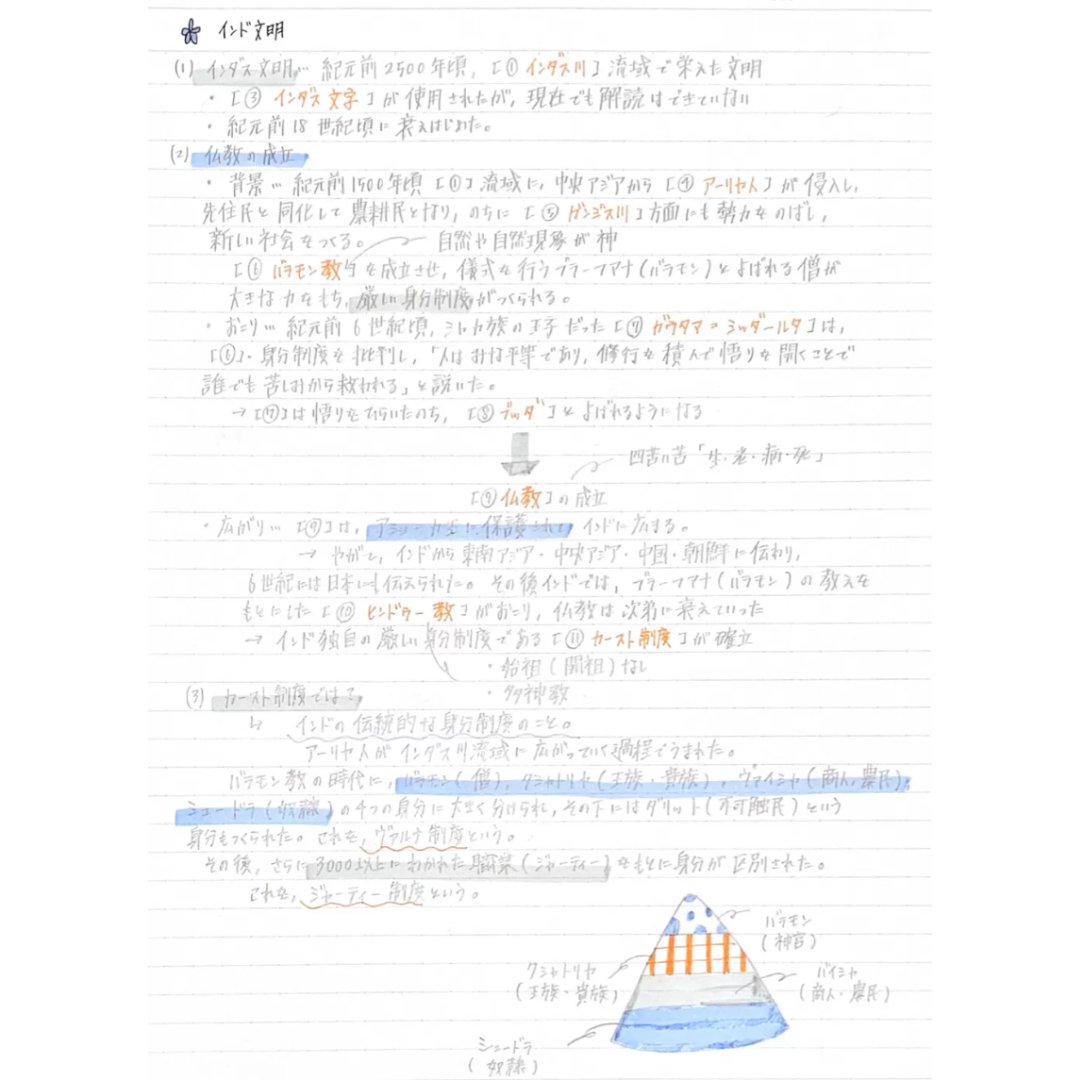 インド文明
(1) インダス文明… 紀元前2500年頃,【① インダス川】流域で栄えた文明
・【③ インダス文字】が使用されたが, 現在でも解読はできていない
・紀元前18世紀頃に衰えはじめた。
(2) 仏教の成立
・背景… 紀元前1500年頃【①】流域に, 中央アジアから【④ アーリヤ人】が侵入し,
先住民と同化して農耕民となり, のちに【⑤ ガンジス川】方面にも勢力をのばし,
新しい社会をつくる。 自然や自然現象が神
【⑥ バラモン教】を成立させ, 儀式を行うブラーフアナ(バラモン)とよばれる僧が
大きな力をもち, 厳しい身分制度がつくられる。
・おこり… 紀元前6世紀頃, シャカ族の王子だった【⑦ ガウタマ=シッダールタ】は,
【⑥】・身分制度を批判し,「人はみな平等であり, 修行を積んで悟りを開くことで
誰でも苦しみから救われる」と説いた。
→【⑦】は悟りをひらいたのち,【⑧ ブッダ】とよばれるようになる
四苦八苦「生・老・病・死」
【⑨ 仏教】の成立
・広がり…【⑨】は, アショーカ王に保護されて インドに広まる。
→ やがて, インドから東南アジア・中央アジア・中国・朝鮮に伝わり,
6世紀には日本にも伝えられた。その後インドでは, ブラーフアナ(バラモン)の教えを
もとにした【⑩ ヒンドゥー教】がおこり, 仏教は次第に衰えていった
→ インド独自の厳しい身分制度である【⑪ カースト制度】が確立
・始祖(開祖)なし
・多神教
(3) カースト制度ではて
↳ インドの伝統的な身分制度のこと。
アーリヤ人がインダス川流域に広がっていく過程でうまれた。
バラモン教の時代に, バラモン(僧), クシャトリヤ(王族・貴族), ヴァイシャ(商人・農民),
シュードラ(奴隷)の4つの身分に大きく分けられ, その下にはダリット(不可触民)という
身分もつくられた。これを, ヴァルナ制度という。
その後, さらに3000以上にわかれた職業(ジャーティー)をもとに身分が区別された。
これを, ジャーティー制度という。
バラモン
(神官)
クシャトリヤ
(王族・貴族)
バイシャ
(商人・農民)
シュードラ
(奴隷)